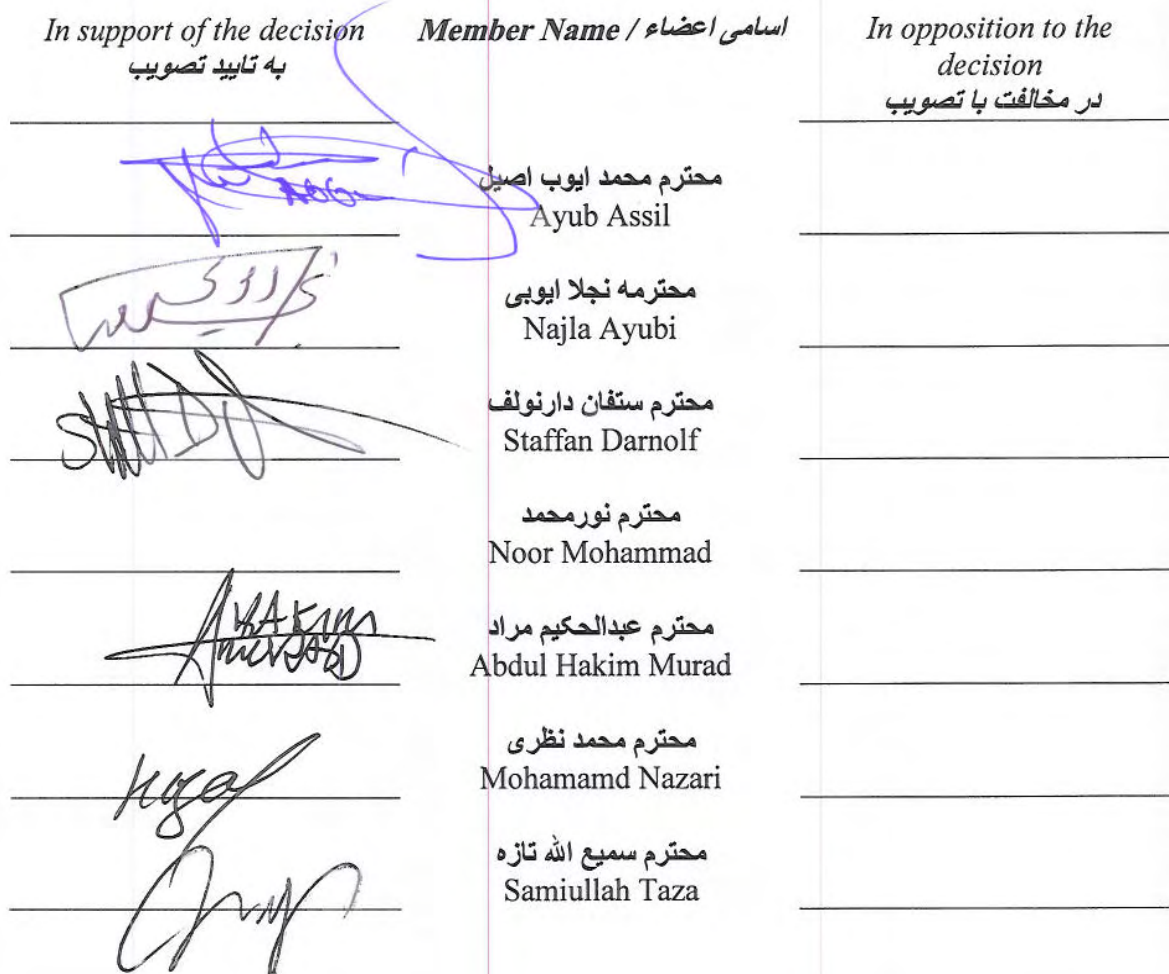 In support of the decision
به تایید تصویب
Member Name / اسامی اعضاء
In opposition to the
decision
در مخالفت با تصویب
محترم محمد ایوب اصیل
Ayub Assil
محترمه نجلا ایوبی
Najla Ayubi
محترم ستفان دارنولف
Staffan Darnolf
محترم نورمحمد
Noor Mohammad
HAKIM
MURAD
محترم عبدالحکیم مراد
Abdul Hakim Murad
محترم محمد نظری
Mohamamd Nazari
محترم سمیع الله تازه
Samiullah Taza